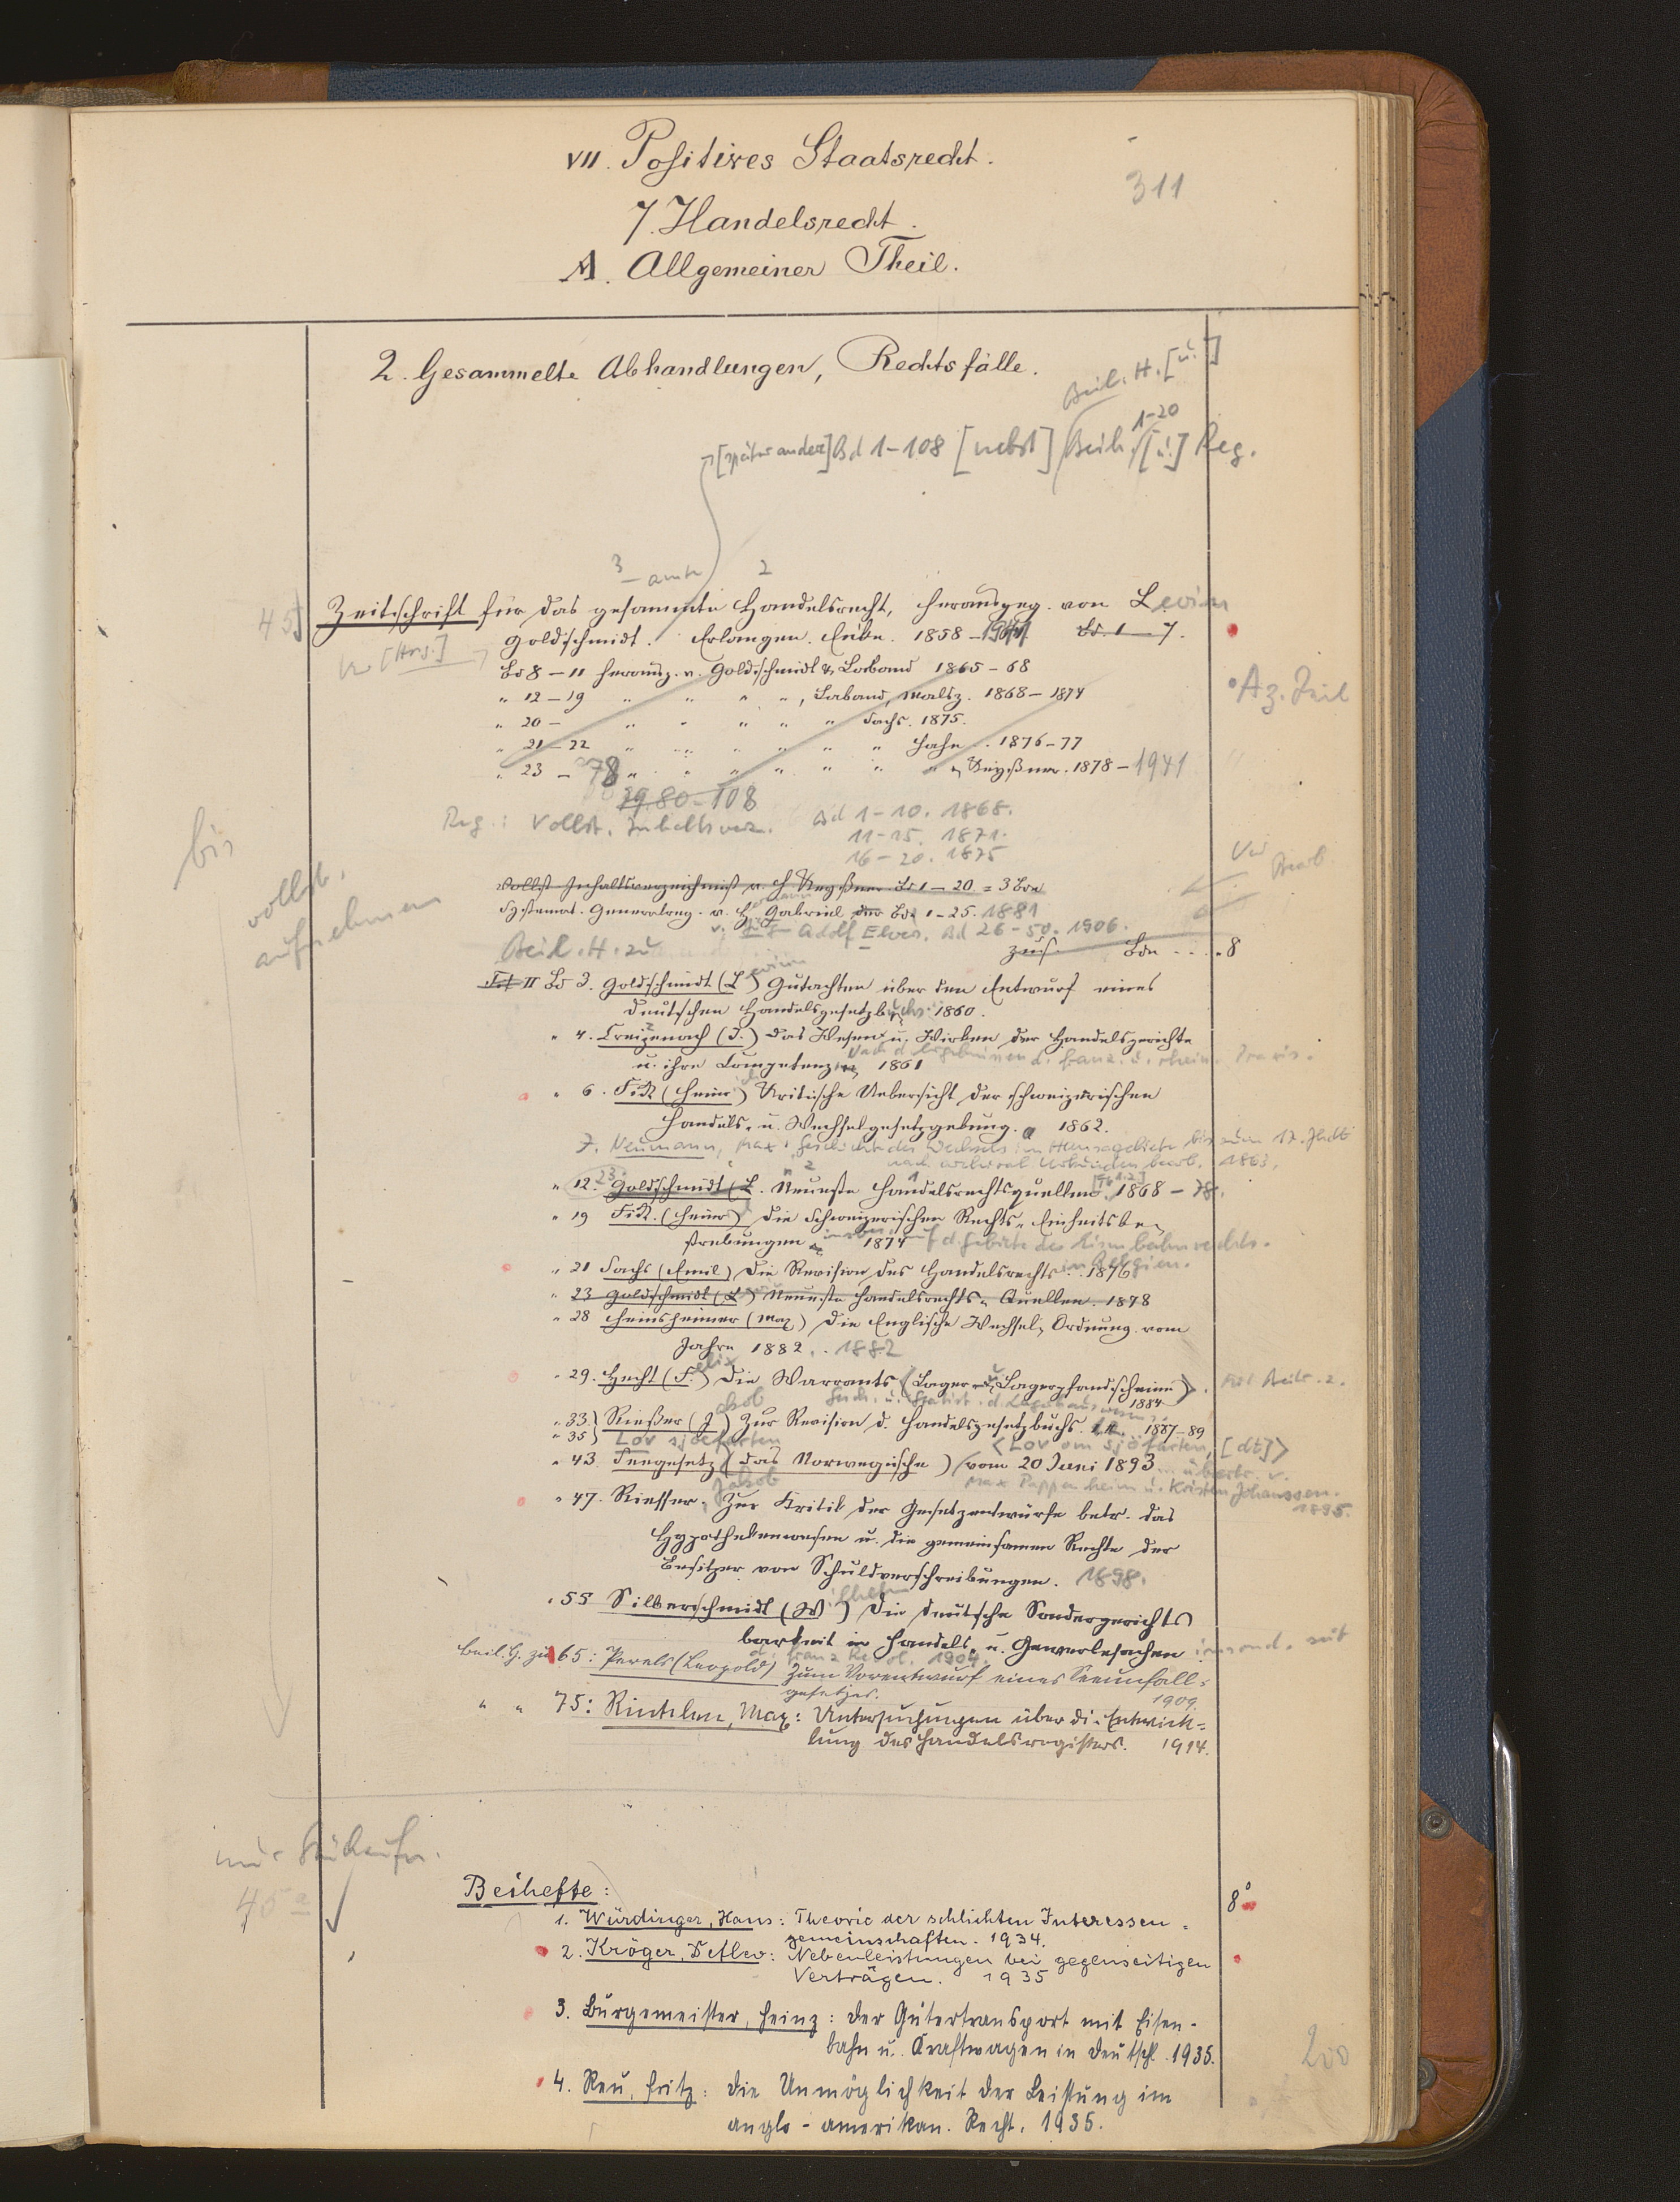 VII. Positives Staatsrecht.
311
7. Handelsrecht.
A. Allgemeiner Theil.
2. Gesammelte Abhandlungen, Rechtsfälle.
Beil. H. [u.]
1-20
[später ander] Bd 1-108 [nebst] Beih. [u.] Reg.
3 2
45
Zeitschrift für das gesammte Handelsrecht, herausgeg. von Levin
Goldschmidt. Erlangen. Enke. 1858-1941 Bd. 1-7.
[Hrs.]
Bd 8-11 herausg. v. Goldschmidt & Laband 1865-68
" 12-19 " " " ", Laband, Malsz. 1868-1874
" 20- " " " " " Sachs. 1875.
" 21-22 " " " " " " Hahn. 1876-77
" 23-78 " " " " " " " & Keyßner. 1878-1941
80-108
Reg.: Vollst. Inhaltsverz. Bd 1-10. 1868.
11-15. 1871.
16-20. 1875
bis
vollst.
aufnehmen
Vollst. Inhaltsverzeichniß v. H Keyßner Bd 1-20 = 3 Bde
Systemat. Generalreg. v. H. Gabriel Bd. 1-25. 1881
v. Adolf Elvers. Bd 26-50. 1906.
Beil. H. zu
zus. Bde . . . 8
II Bd 3. Goldschmidt (Levin) Gutachten über den Entwurf eines
Deutschen Handelsgesetzbuchs. 1860.
" 4. Creizenach (I.) Das Wesen u. Wirken der Handelsgerichte
u. ihre Competenz, nach d. Ergebnissen d. franz. u. rhein. Praxis.
1861
" 6. Fick (Heinr) Kritische Uebersicht der schweizerischen
Handels- u. Wechselgesetzgebung. 1862.
7. Neumann, Max: Geschichte des Wechsels im Hansagebiete bis zum 17. Jhdt
nach archival. Urkunden bearb. 1863.
" 12. 23. Goldschmidt (L. Neueste Handelsrechtsquellen. [Th 1.2] 1868-78.
" 19 Fick. (Heinr) Die Schweizerischen Rechts-Einheitsbe-
strebungen 1874 auf d. Gebiete des Eisenbahnrechts.
" 21 Sachs (Emil) Die Revision des Handelsrechts in Belgien. 1876
" 23 Goldschmidt (L) Neueste Handelsrechts-Quellen. 1878
" 28 Heinsheimer (Max) Die Englische Wechsel-Ordnung vom
Jahre 1882. 1882
" 29. Hecht (Felix) Die Warrants (Lager- u. Lagerpfandscheine).
1884
" 33 } Rießer (Jakob) Zur Revision d. Handelsgesetzbuchs. 1887-89
" 35 } Lov sjoefarten <Lov om sjöfarten, [dt]>
" 43 Seegesetz (das Norwegische) vom 20 Juni 1893 übertr. v.
Max Pappenheim u. Kristen Johanssen.
1895.
" 47. Riesser, Jakob Zur Kritik der Gesetzentwürfe betr. das
Hypothekenwesen u. die gemeinsamen Rechte der
Besitzer von Schuldverschreibungen. 1898.
" 55 Silberschmidt (Wilhelm) Die deutsche Sondergerichts
barkeit in Handels- u. Gewerbesachen insond. seit
d. franz. Revol. 1904.
Beil. H. zu 65: Perels (Leopold) Zum Vorentwurf eines Seeunfall-
gesetzes. 1909.
" " 75: Rintelen, Max: Untersuchungen über die Entwick-
lung des Handelsregisters. 1914.
nur Stückaufn.
45a
Beihefte: 8°
1. Würdinger, Hans: Theorie der schlichten Interessen-
gemeinschaften. 1934.
2. Kröger, Detlev: Nebenleistungen bei gegenseitigen
Verträgen. 1935
3. Burgemeister, Heinz: Der Gütertransport mit Eisen-
bahn u. Kraftwagen in Deutschl. 1935.
200
4. Reu, Fritz: Die Unmöglichkeit der Leistung im
anglo-amerikan. Recht. 1935.